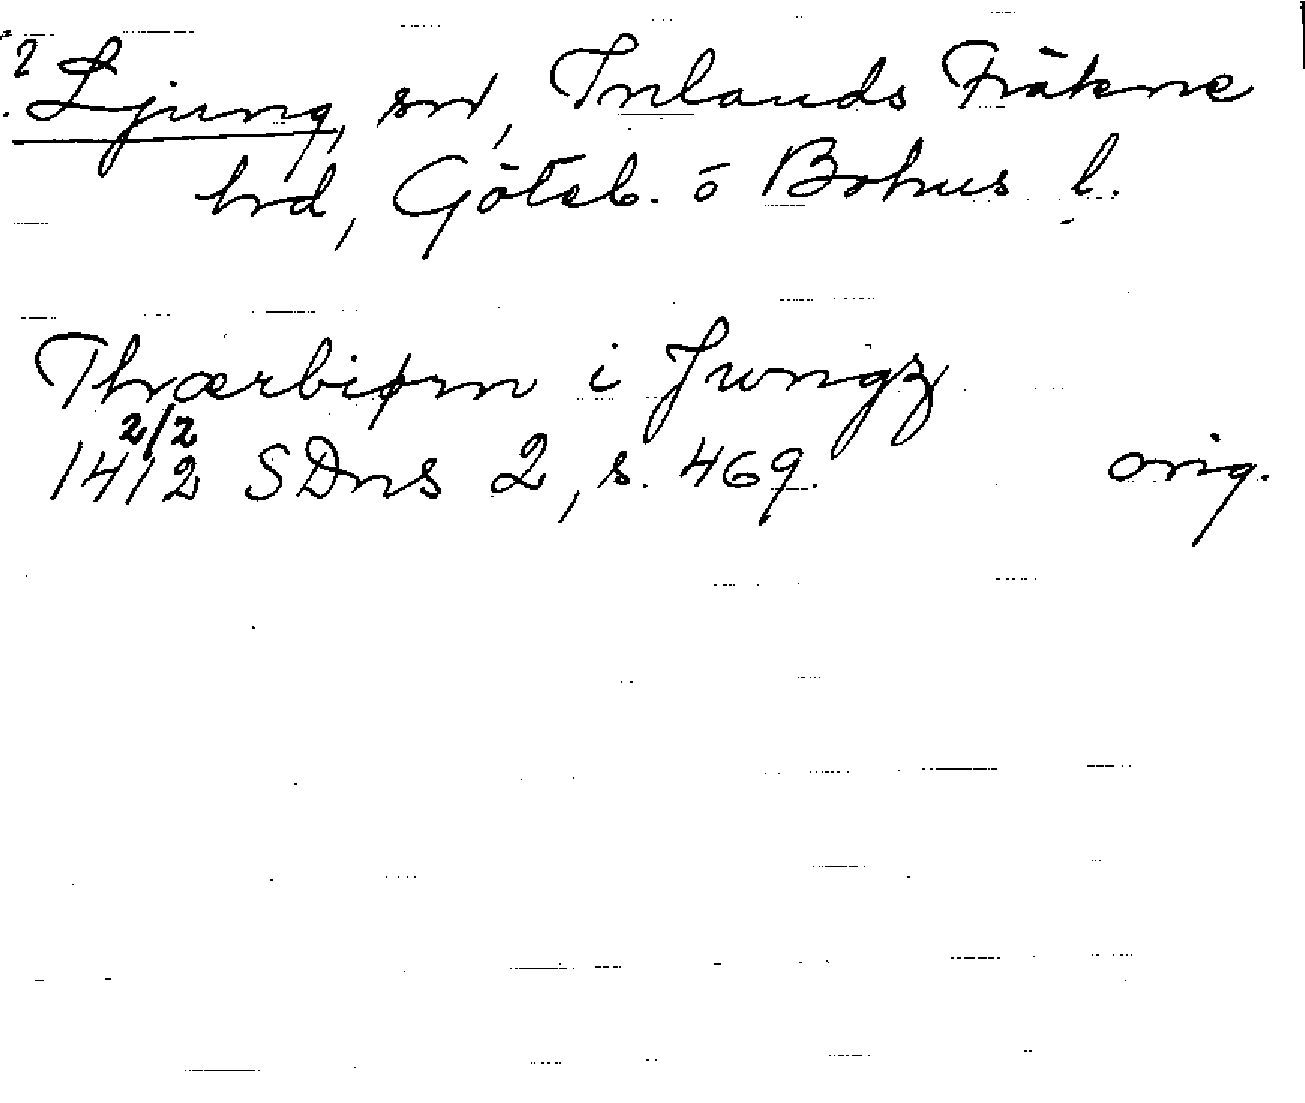 ? Ljung, sn, Inlands Fräkne
hrd, Göteb. o Bohus l.
Thrærbiørn i Jwngz
2/2
1412 SDns 2, s. 469. orig.